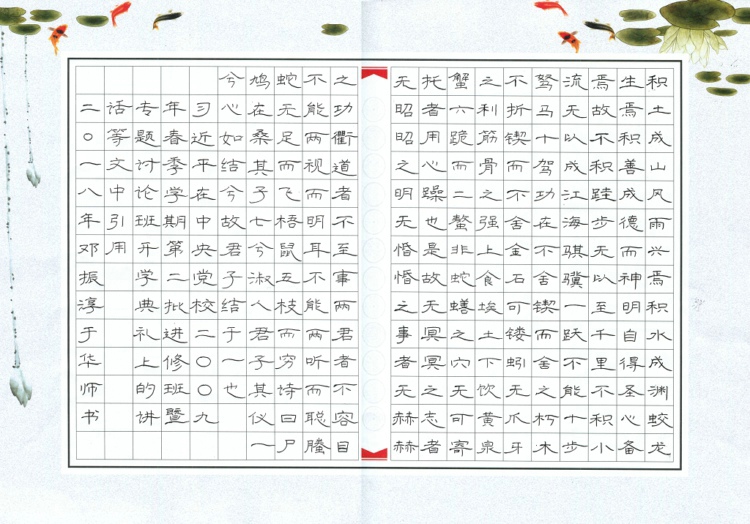 积土成山风雨兴焉积水成渊蛟龙
生焉积善成德而神明自得圣心备
焉故不积跬步无以至千里不积小
流无以成江海骐骥一跃不能十步
驽马十驾功在不舍锲而舍之朽木
不折锲而不舍金石可镂蚓无爪牙
之利筋骨之强上食埃土下饮黄泉
蟹六跪而二螯非蛇蟮之穴无可寄
托者用心躁也是故无冥冥之志者
无昭昭之明无惛惛之事者无赫赫
之功衢道者不至事两君者不容目
不能两视而明耳不能两听而聪螣
蛇无足而飞梧鼠五枝而穷诗曰尸
鸠在桑其子七兮淑人君子其仪一
兮心如结兮故君子结于一也
习近平在中央党校二〇〇九
年春季学期第二批进修班暨
专题讨论班开学典礼上的讲
话等文中引用
二〇一八年邓振淳于华师书